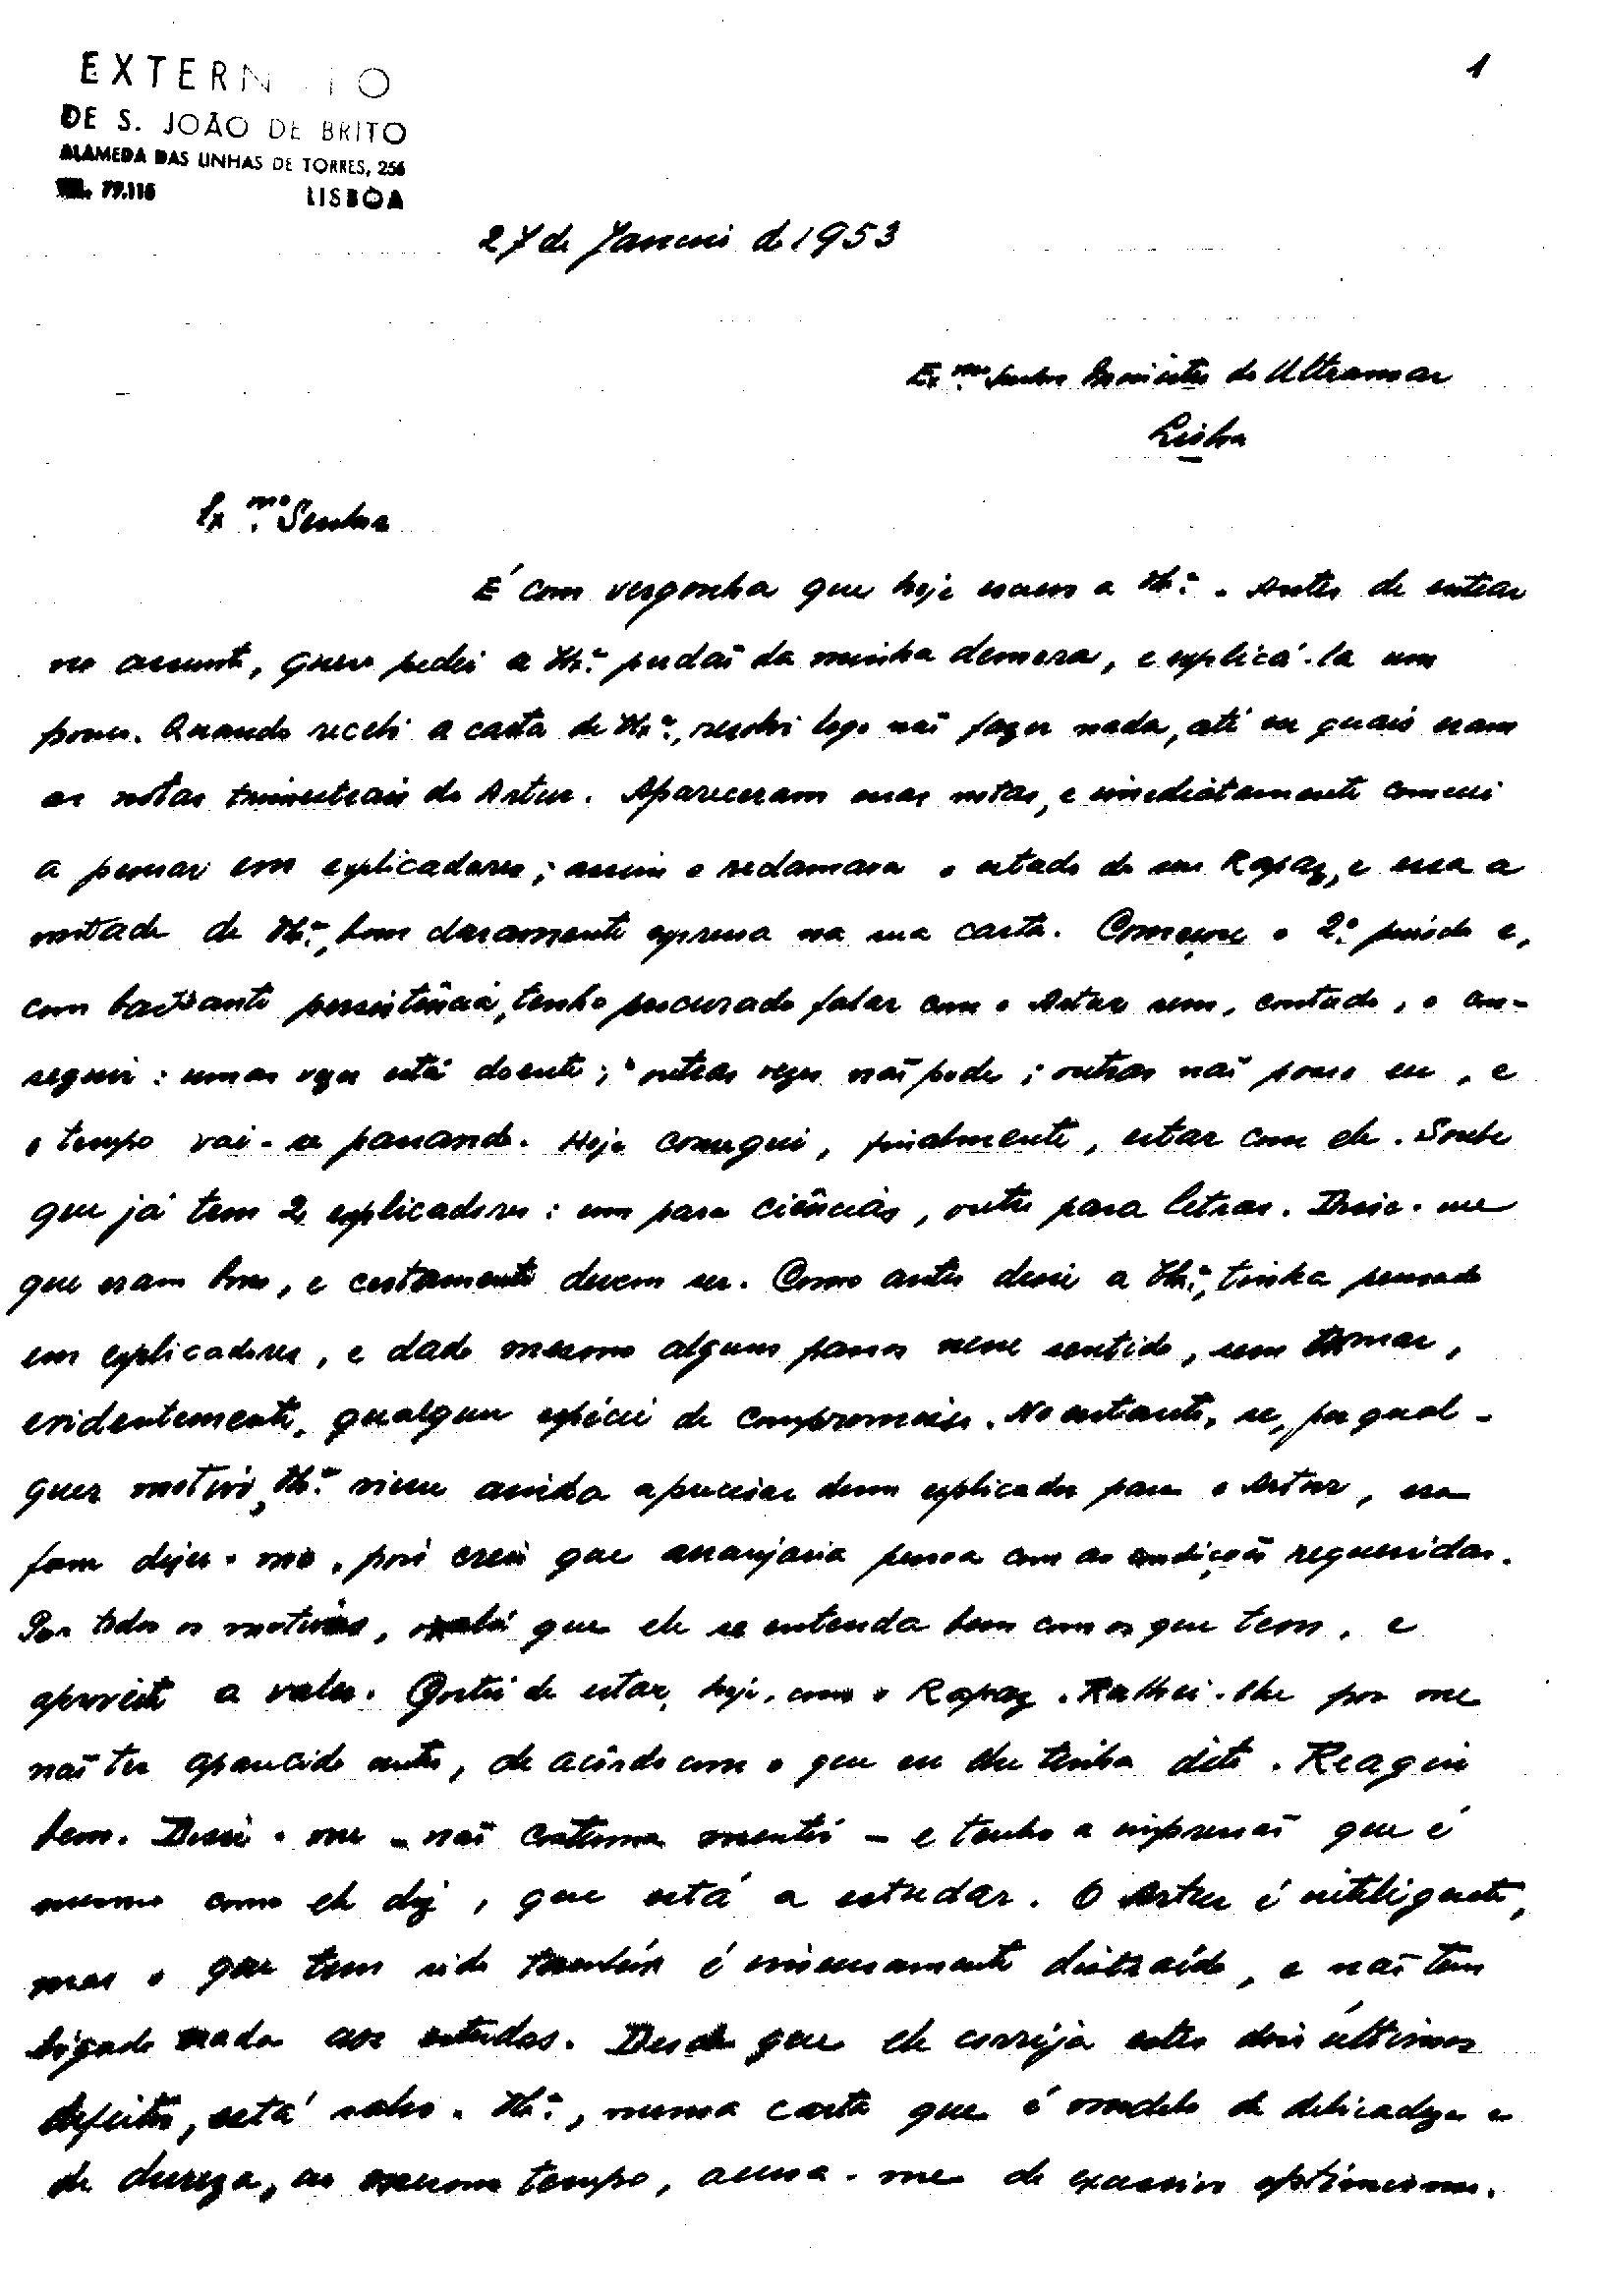 1
EXTERN TO
DE S. JOÃO DE BRITO
ALAMEDA DAS LINHAS DE TORRES, 256
TEL. 79.115 LISBOA
27 de Janeiro de 1953
Ex.mo Senhor Ministro do Ultramar
Lisboa
Ex.mo Senhor
É com vergonha que hoje escrevo a V.Ex.ª. Antes de entrar
no assunto, quero pedir a V.Ex.ª perdão da minha demora, e explicá-la um
pouco. Quando recebi a carta de V.Ex.ª, resolvi logo não fazer nada, até ver quais eram
as notas trimestrais do Artur. Apareceram essas notas, e imediatamente comecei
a pensar em explicadores; assim o reclamava o estado do seu Rapaz, e essa a
vontade de V.Ex.ª, bem claramente expressa na sua carta. Começou o 2.º período e,
com bastante persistência, tenho procurado falar com o Artur sem, contudo, o con-
seguir: umas vezes está doente; outras vezes não pode; outras não posso eu, e
o tempo vai-se passando. Hoje consegui, finalmente, estar com ele. Soube
que já tem 2 explicadores: um para ciências, outro para letras. Disse-me
que eram bons, e certamente devem ser. Como antes disse a V.Ex.ª, tinha pensado
em explicadores, e dado mesmo alguns passos nesse sentido, sem tomar,
evidentemente, qualquer espécie de compromisso. No entanto, se, por qual-
quer motivo, V.Ex.ª vier ainda a precisar dum explicador para o Artur, era
favor dizer-mo, pois creio que arranjaria pessoa com as condições requeridas.
Por todos os motivos, oxalá que ele se entenda bem com os que tem, e
aproveite a valer. Gostei de estar, hoje, com o Rapaz. Ralhei-lhe por me
não ter aparecido antes, de acôrdo com o que eu lhe tinha dito. Reagiu
bem. Disse-me - não costuma mentir - e tenho a impressão que é
mesmo como ele diz, que está a estudar. O Artur é inteligente,
mas o que tem sido também é imensamente distraído, e não tem
ligado nada aos estudos. Desde que ele corrija estes dois últimos
defeitos, está salvo. V.Ex.ª, numa carta que é modelo de delicadeza e
de dureza, ao mesmo tempo, acusa-me de excessivo optimismo.